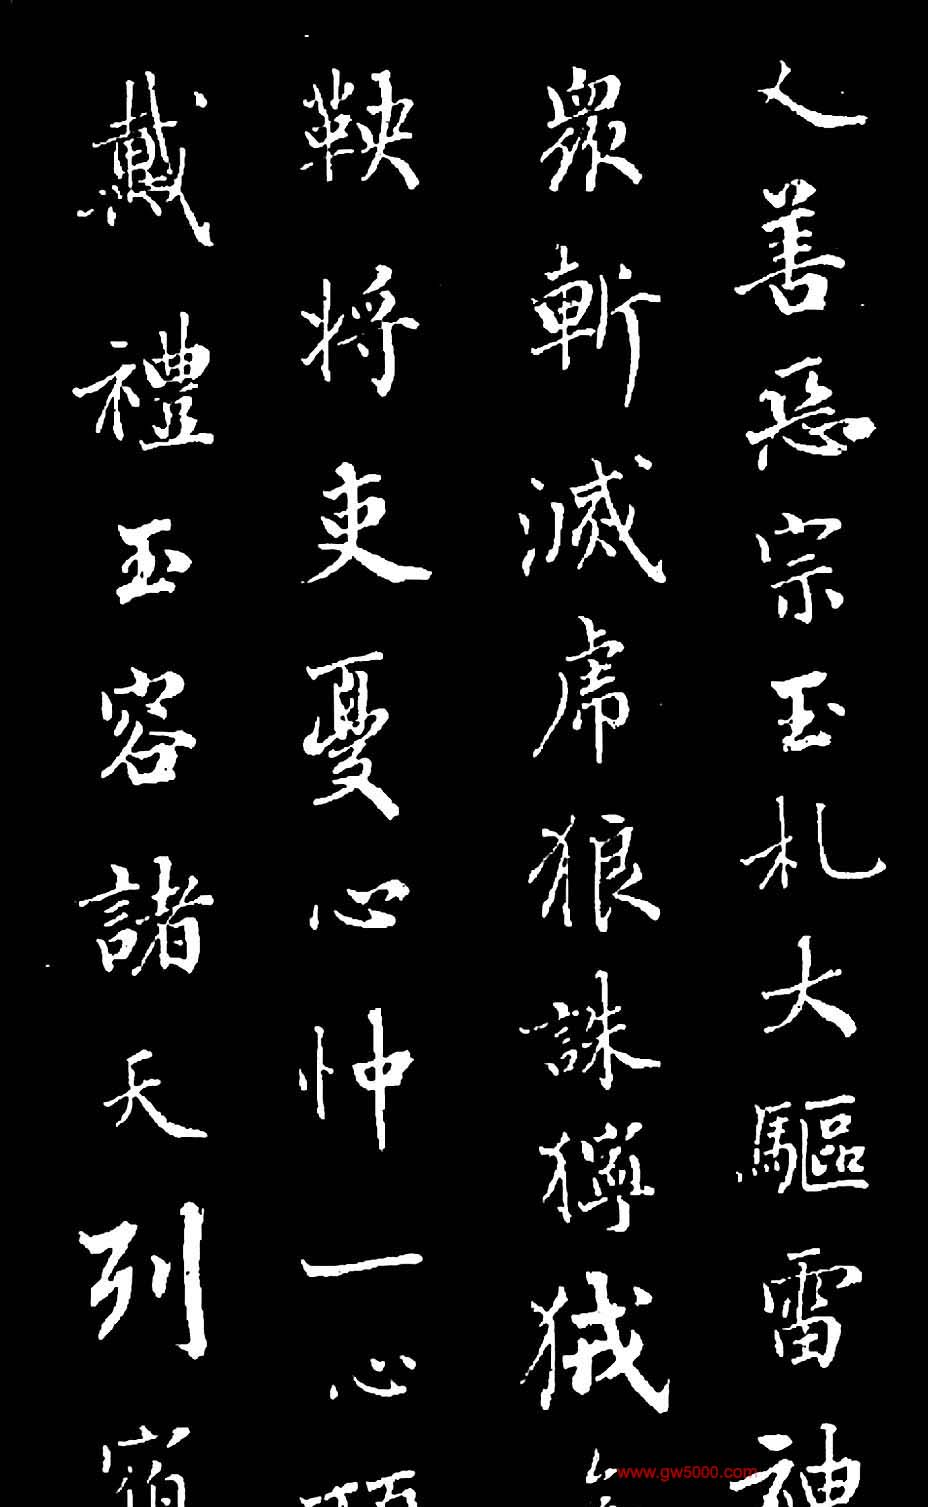 人善惡宗玉札大驅雷神
眾斬滅虎狼誅獰狨
鞅将吏憂心忡一心頂
戴禮玉容諸天列宿
www.gw5000.com